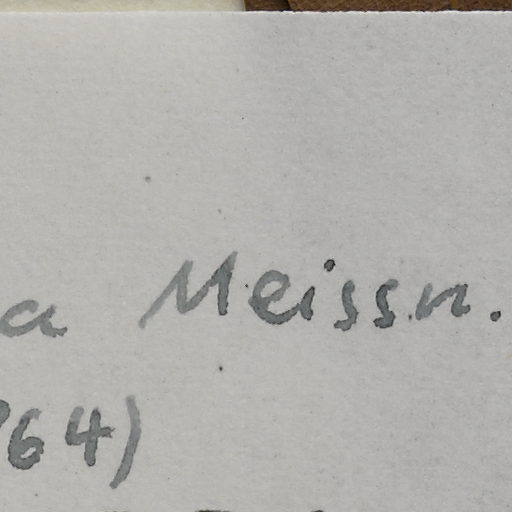 a Meissn.
64)